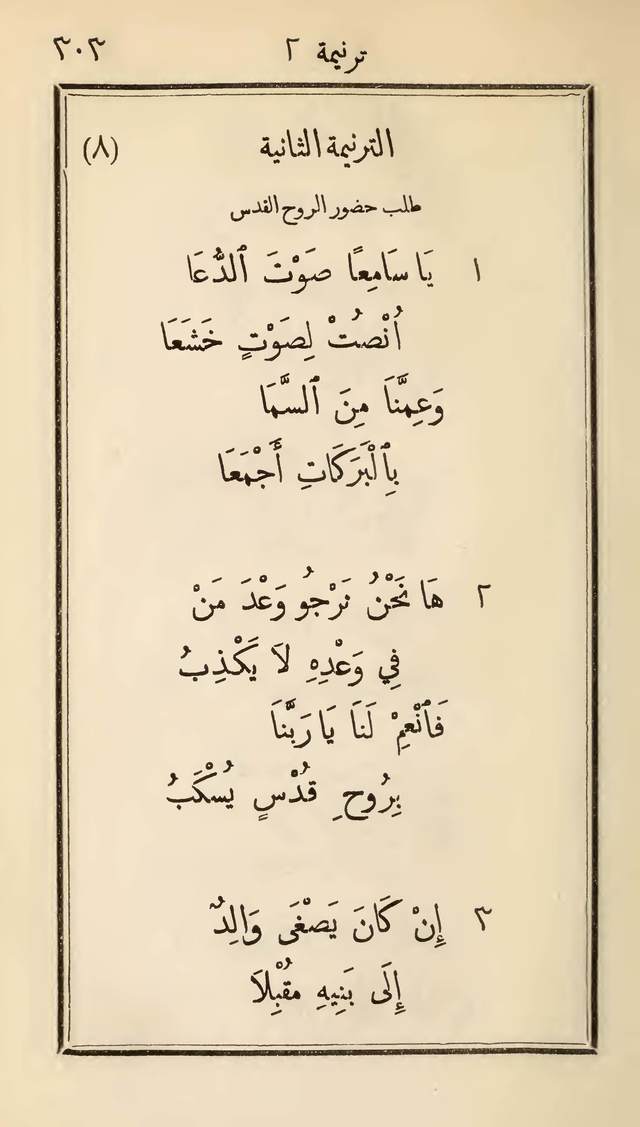 ترنيمة ٢ ٣٠٣
الترنيمة الثانية (٨)
طلب حضور الروح القدس
١ يَا سَامِعًا صَوْتَ ٱلدُّعَا
أُنْصُتْ لِصَوْتٍ خَشَعَا
وَعِمَّنَا مِنَ ٱلسَّمَا
بِٱلْبَرَكَاتِ أَجْمَعَا
٢ هَا نَحْنُ نَرْجُو وَعْدَ مَنْ
فِي وَعْدِهِ لاَ يَكْذِبُ
فَٱنْعِمْ لَنَا يَا رَبَّنَا
بِرُوحِ قُدْسٍ يُسْكَبُ
٣ إِنْ كَانَ يَصْغَى وَالِدٌ
إِلَى بَنِيهِ مُقْبِلاَ